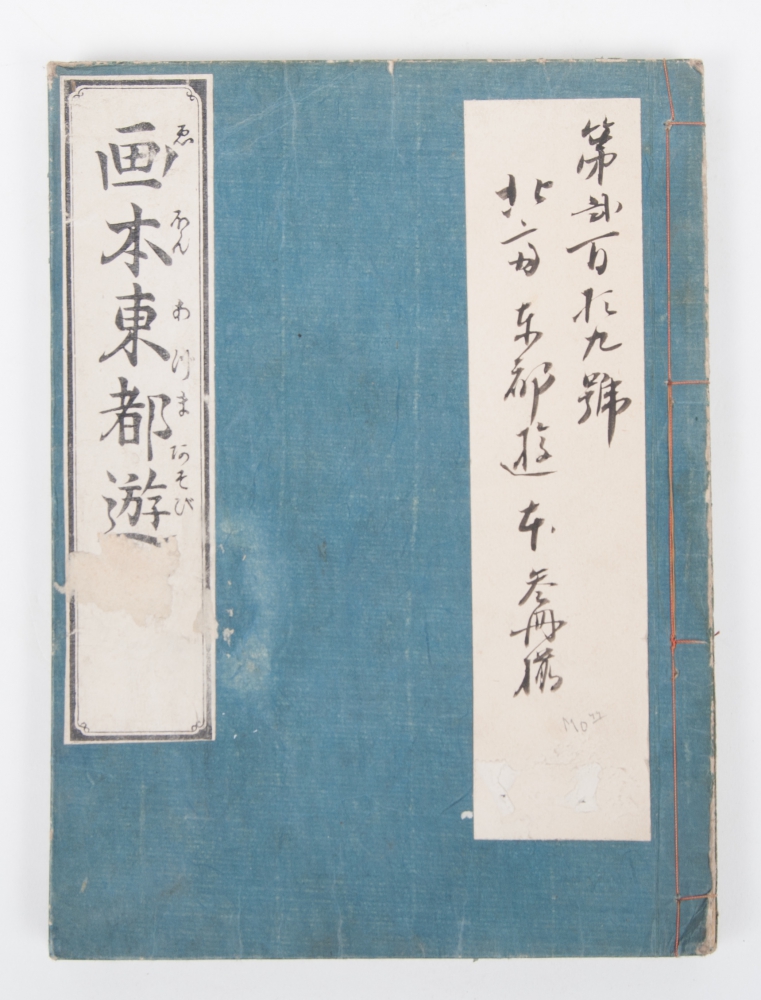 第弐百拾九號
北斎東都遊本参冊揃
ゑほんあづまあそび
画本東都遊